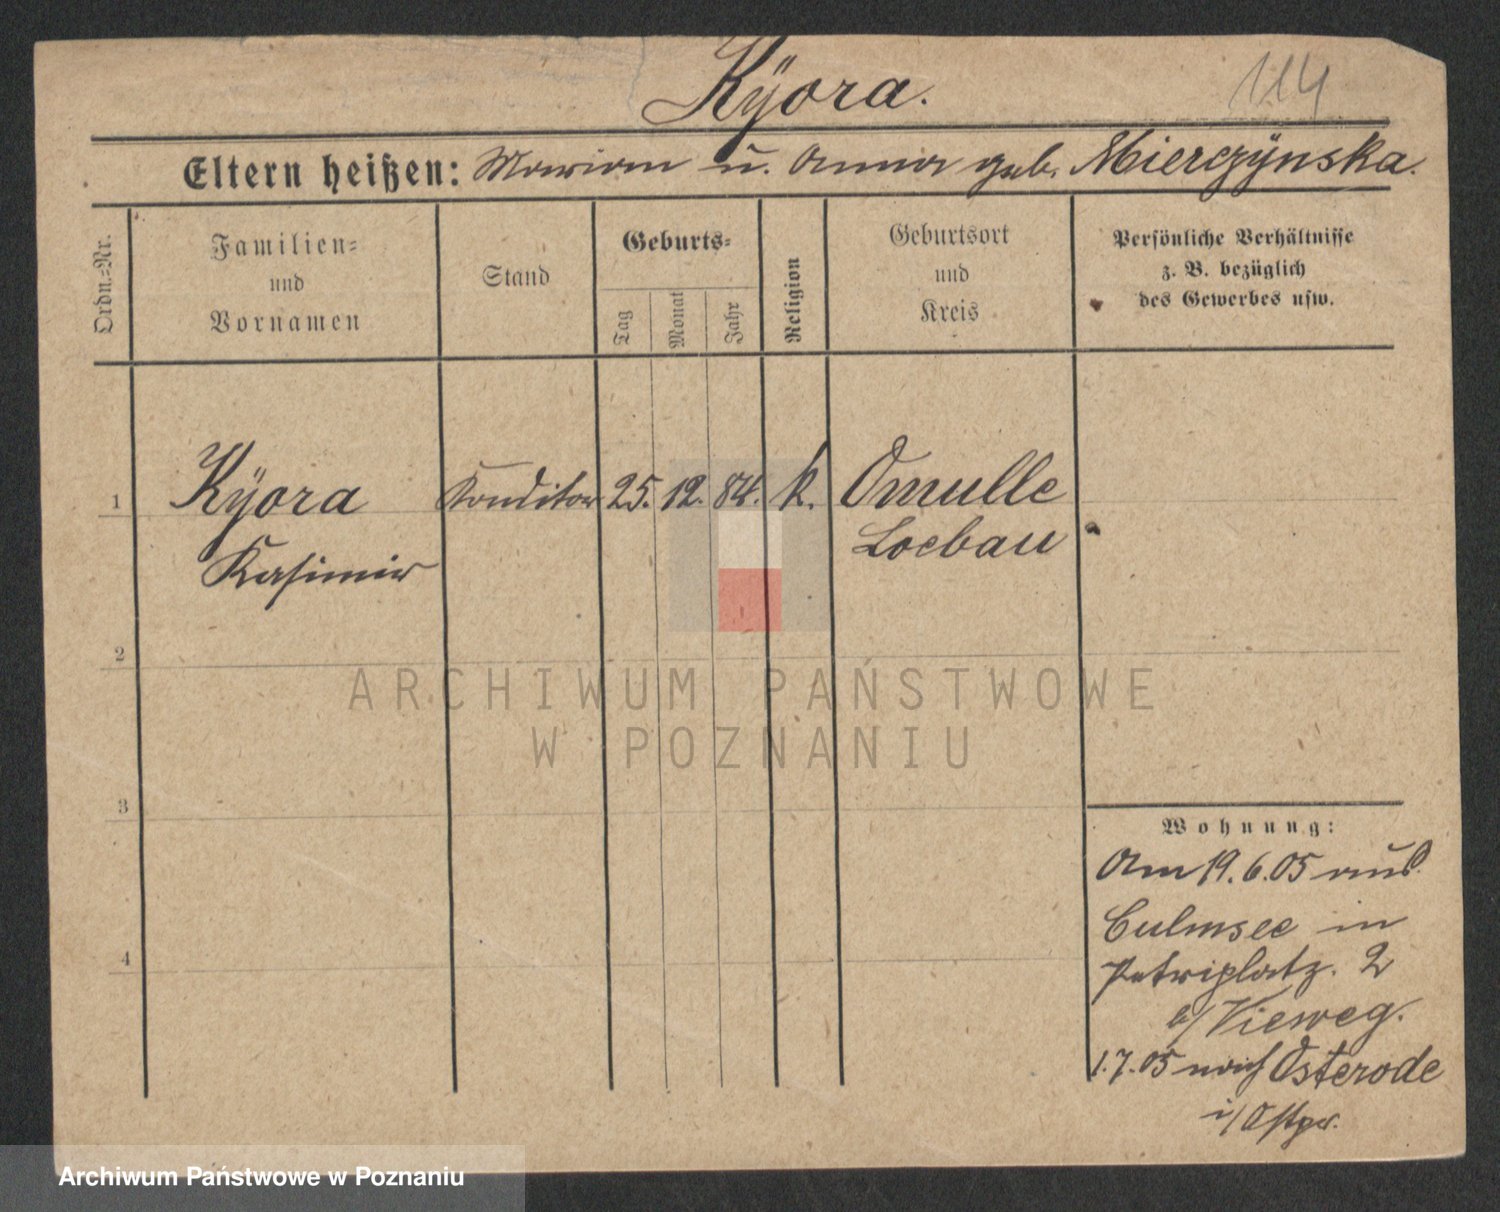 Kÿora.
114
Eltern heißen: Marian u. Anna geb. Mierczÿnska.
Ordn.-Nr.
Familien-
und
Vornamen
Stand
Geburts-
Tag
Monat
Jahr
Religion
Geburtsort
und
Kreis
Persönliche Verhältnisse
z. B. bezüglich
des Gewerbes usw.
1 Kÿora Konditor 25. 12. 84. k. Omulle
Loebau
Kasimir
2
3
4
Wohnung:
Am 19.6.05 aus
Culmsee in
Petriplatz. 2
b/Vieweg.
1.7.05 nach Osterode
i/Ostpr.
ARCHIWUM PAŃSTWOWE
W POZNANIU
Archiwum Państwowe w Poznaniu